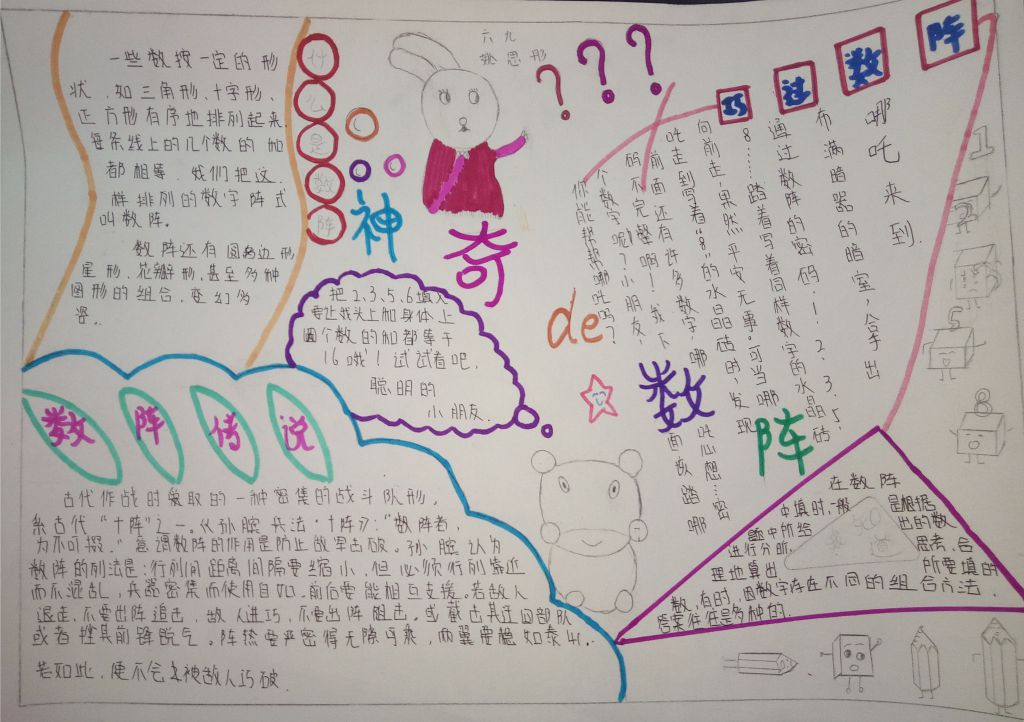 六九
姚思彤
什么是数阵
一些数按一定的形
状，如三角形、十字形、
正方形有序地排列起来，
每条线上的几个数的和
都相等，我们把这
样排列的数字阵式
叫数阵。
数阵还有圆角边形
星形、花瓣形，甚至多种
图形的组合，变幻多
姿。
神奇de数阵
把2.3.5.6填入
要让我头上和身体上
圆个数的和都等于
16哦！试试看吧，
聪明的
小朋友.
巧过数阵
哪吒来到
布满暗器的暗室，拿出
通过数阵的密码.1.2.3.5.
8……踏着写着同样数字的水晶砖，
向前走，果然平安无事。可当哪
吒走到写着“8”的水晶砖时，发现
前面还有许多数字，哪吒心想……密
码不完整啊！我下面该踏哪
个数字呢？小朋友，
你能帮帮哪吒吗？
1
2
3
5
8
数阵传说
古代作战时采取的一种密集的战斗队形，
系古代“十阵”之一。《孙膑兵法·十阵》：“数阵者，
为不可掇。”意谓数阵的作用是防止敌军击破。孙膑认为
数阵的列法是：行列间距离间隔要缩小，但必须行列靠近
而不混乱，兵器密集而使用自如，前后要能相互支援。若敌人
退走，不要出阵追击，敌人进巧，不要出阵阻击。或截击其迂回部队
或者挫其前锋锐气。阵势要严密得无隙可乘，而翼要稳如泰山..
若如此，便不会被敌人巧破.
在数阵
中填时，一般是根据
题中所给出的数
进行分析，思考，合
理地算出所要填的
数，有时，因数字存在不同的组合方法，
答案往往是多种的.